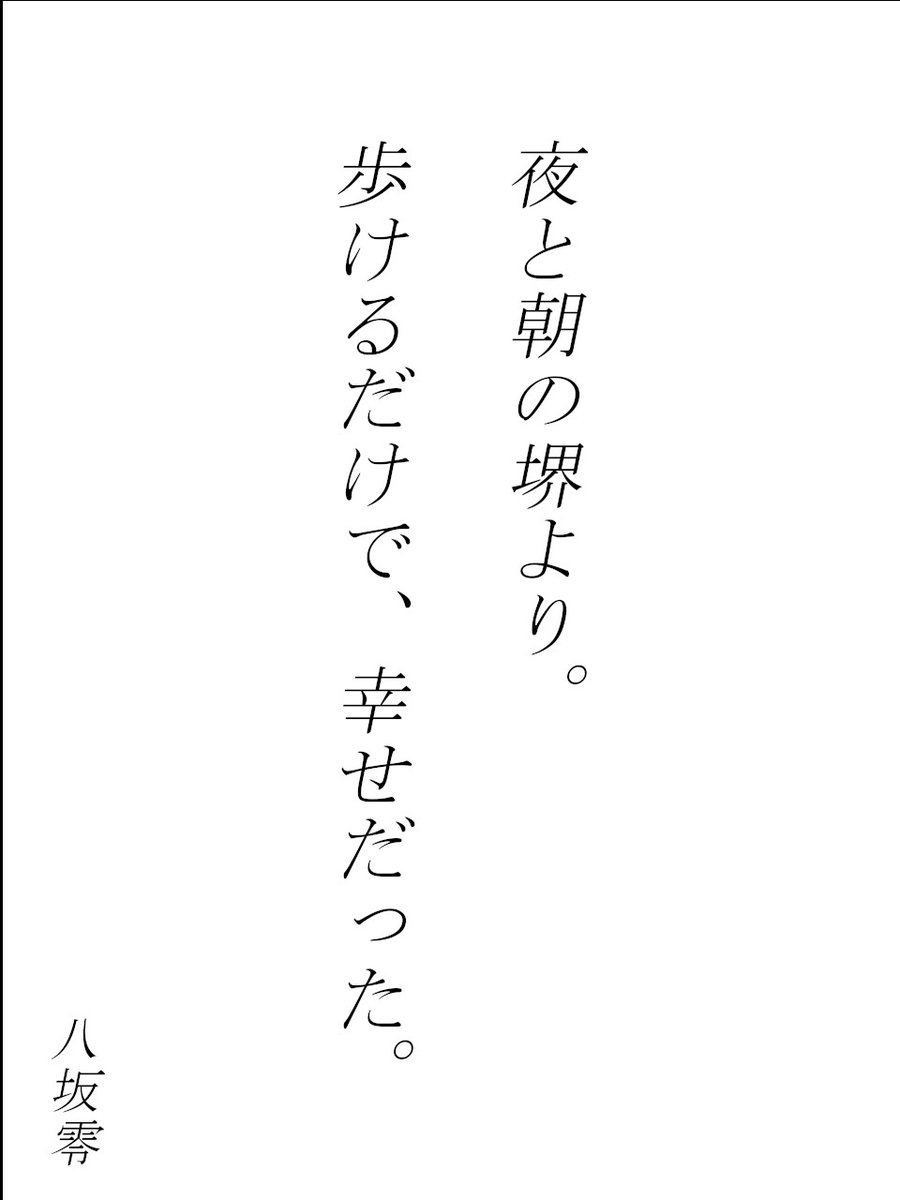 夜と朝の堺より。
歩けるだけで、幸せだった。
八坂零